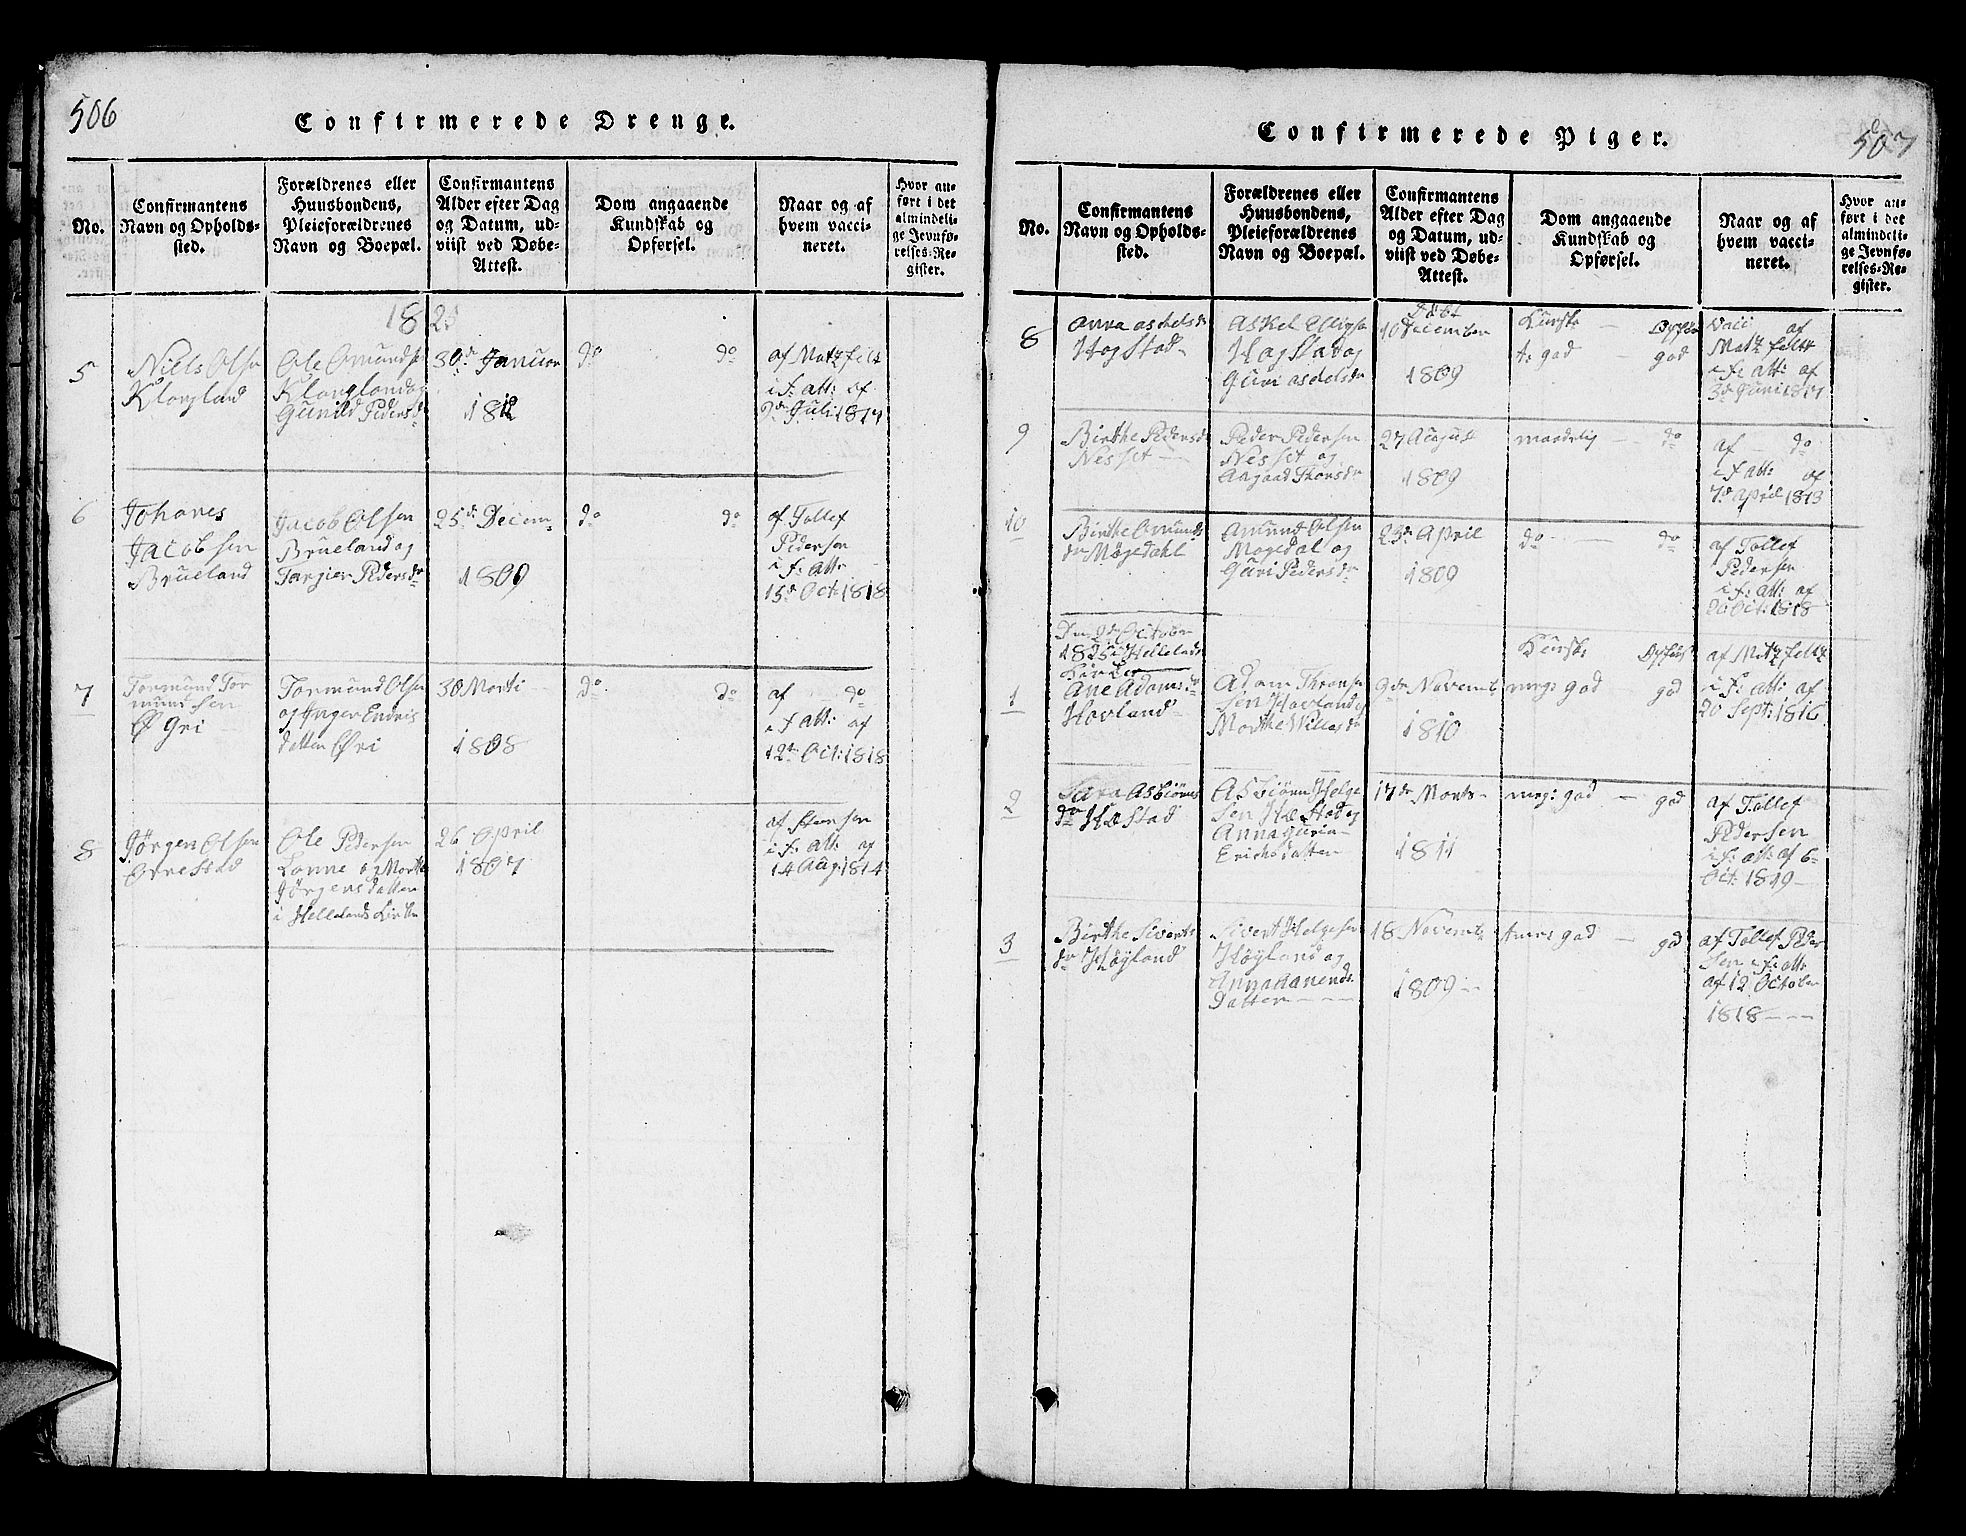 506
Confirmerede Drenge.
No.
Confirmantens
Navn og Opholds-
sted.
Forældrenes eller
Huusbondens,
Pleieforældrenes
Navn og Boepæl.
Confirmantens
Alder efter Dag
og Datum, ud-
viist ved Døbe-
Attest.
Dom angaaende
Kundskab og
Opførsel.
Naar og af
hvem vacci-
neret.
Hvor an-
ført i det
almindeli-
ge Jevnfø-
relses-Re-
gister.
1825
5
Niels Olsen
Klungland
Ole Omundsen
Klongland og
Gunild Pedersdr
30de Januar
1812
do do
af Matzfelt
i f: att: af
2de Juli 1814
6
Johanes
Jacobsen
Brueland
Jacob Olsen
Brueland og
Targier Pedersdr
25de Decem
1809
do do
af Tollef
Pedersen
i f: att:
15de Oct: 1818
7
Tormund Tor
mundsen
Øgri
Tormund Olsen
og Inger Endris
datter Øri
30 Marti
1808
do do
af do
i f att: af
12te Oct: 1818
8
Jørgen Olsen
Orrestad
Ole Pedersen
Lonne og Marthe
Jørgensdatter
i Hellelands Kirke
26 April
1807
af Steensen
i f: att: af
14 Aug: 1814
507
Confirmerede Piger.
No.
Confirmantens
Navn og Opholds-
sted.
Forældrenes eller
Huusbondens,
Pleieforældrenes
Navn og Boepæl.
Confirmantens
Alder efter Dag
og Datum, ud-
viist ved Døbe-
Attest.
Dom angaaende
Kundskab og
Opførsel.
Naar og af
hvem vacci-
neret.
Hvor an-
ført i det
almindeli-
ge Jevnfø-
relses-Re-
gister.
8
Anna Aschelsdr
Hogstad
Askel
Hogstad og
Guri Aschelsdr
Døbt
10 December
1809
Kunsk Opfør
god god
Vacc af
Matzfeltt
i f: att: af
3de Juni 1817
9
Birthe Pedersdr
Nesset
Peder Pedersen
Nesset og
Aagaad Thorsdr
27 August
1809
maadelig do
af do
i f att: af
7de April 1813
10
Birthe Omunds
dr Møgedahl
Amund Olsen
Mogedal og
Guri Pedersdr
23de April
1809
do do
af Tollef
Pedersen
i f: att: af
20 Oct: 1818
Den 2de October
1825 i Hellelands
Kirke
1
Ane Adamsdr
Hovland
Adam Thron
sen Hovland og
Marthe Willasdr
9de Novemb
1810
Kunsk Opførs
meg: god god
af Matzfeltz
i f: att: af
20 Sept: 1816
2
Sara Asbiørns
dr Hæstad
Asbiørn Helge
sen Hæstad og
Anna Guria
Erichsdatter
17de Marts
1811
meg: god god
af Tollef
Pedersen
i f: att: af 6
Oct: 1819
3
Birthe Siverts
dr Høyland
Sivert Helgesen
Høyland og
Anna Aanends
Datter
18 Novemb
1809
god god
af Tollef Peder
sen i f: att:
af 12 October
1818